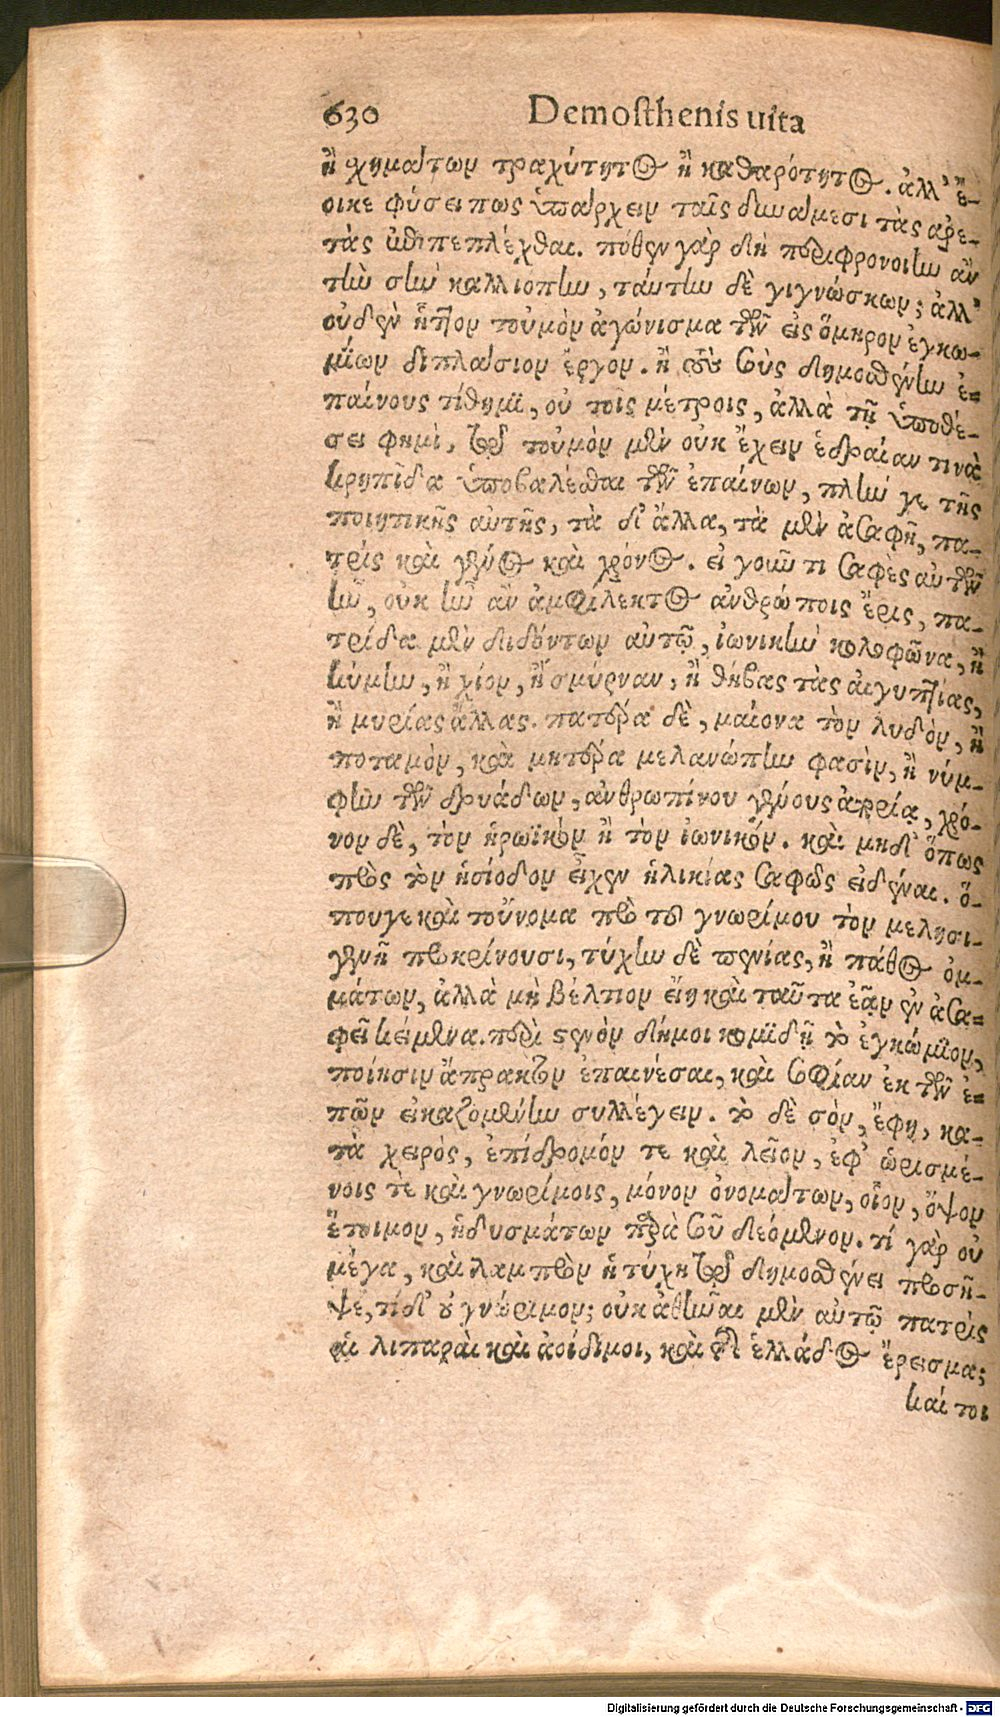 630 Demosthenis uita
ἢ χημάτων τραχύτητος ἢ καθαρότητος. ἀλλ' ἔ-
οικε φύσει πως ὑπάρχειν ταῖς δυνάμεσι τὰς ἀρε-
τὰς ἐπιπεπλέχθαι. πόθεν γὰρ δὴ περιφρονοίην ἂν
τὴν σὴν καλλιοπίην, ταύτην δὲ γιγνώσκων; ἀλλ'
οὐδὲν ἧττον τοὐμὸν ἀγώνισμα τῶν εἰς ὅμηρον ἐγκω-
μίων διπλάσιον ἔργον. ἢ σὺ τοὺς δημοσθένην ἐ-
παίνους τίθημι, οὐ τοῖς μέτροις, ἀλλὰ τῇ ὑποθέ-
σει φημὶ, τῷ τοὐμὸν μὲν οὐκ ἔχειν ἑδραίαν τινὰ
κρηπῖδα ὑποβαλέσθαι τῶν ἐπαίνων, πλὴν γε τῆς
ποιητικῆς αὐτῆς, τὰ δ' ἄλλα, τὰ μὲν ἀσαφῆ, πα-
τρὶς καὶ γένος καὶ χρόνος. εἰ γοῦν τι σαφὲς αὐτῶν
ἦν, οὐκ ἦν ἂν ἀμφίλεκτος ἀνθρώποις ἔρις, πα-
τρίδα μὲν διδόντων αὐτῷ, ἰωνικὴν κολοφῶνα, ἢ
κύμην, ἢ χίον, ἢ σμύρναν, ἢ θήβας τὰς αἰγυπτίας,
ἢ μυρίας ἄλλας. πατέρα δὲ, μαίονα τὸν λυδὸν, ἢ
ποταμὸν, καὶ μητέρα μελανώπην φασὶν, ἢ νύμ-
φην τῶν δρυάδων, ἀνθρωπίνου γένους ἀπορίᾳ, χρό-
νον δὲ, τὸν ἡρωϊκὸν ἢ τὸν ἰωνικόν. καὶ μηδ' ὅπως
πρὸς τὸν ἡσίοδον εἶχεν ἡλικίας σαφῶς εἰδέναι. ὅ-
που γε καὶ τοὔνομα πρὸ τοῦ γνωρίμου τὸν μελησι-
γενῆ προκρίνουσι, τύχην δὲ πενίας, ἢ πάθος ὀμ-
μάτων, ἀλλὰ μὴ βέλτιον εἴη καὶ ταῦτα ἐᾷν ἐν ἀσα-
φεῖ κείμενα. περὶ στενὸν δή μοι κομιδῇ τὸ ἐγκώμιον,
ποίησιν ἄπρακτον ἐπαινέσαι, καὶ σοφίαν ἐκ τῶν ἐ-
πῶν εἰκαζομένην συλλέγειν. τὸ δὲ σὸν, ἔφη, κα-
τὰ χειρὸς, ἐπίδρομόν τε καὶ λεῖον, ἐφ' ὡρισμέ-
νοις τὲ καὶ γνωρίμοις, μόνον ὀνομάτων, οἷον, ὄψον
ἕτοιμον, ἡδυσμάτων παρὰ σοῦ δεόμενον. τί γὰρ οὐ
μέγα, καὶ λαμπρὸν ἡ τύχη τῷ δημοσθένει προσῆ-
ψε, τί δ' οὐ γνώριμον; οὐκ ἀθῆναι μὲν αὐτῷ πατρὶς
αἱ λιπαραὶ καὶ ἀοίδιμοι, καὶ τῆς ἑλλάδος ἔρεισμα;
καί τοι
Digitalisierung gefördert durch die Deutsche Forschungsgemeinschaft - DFG